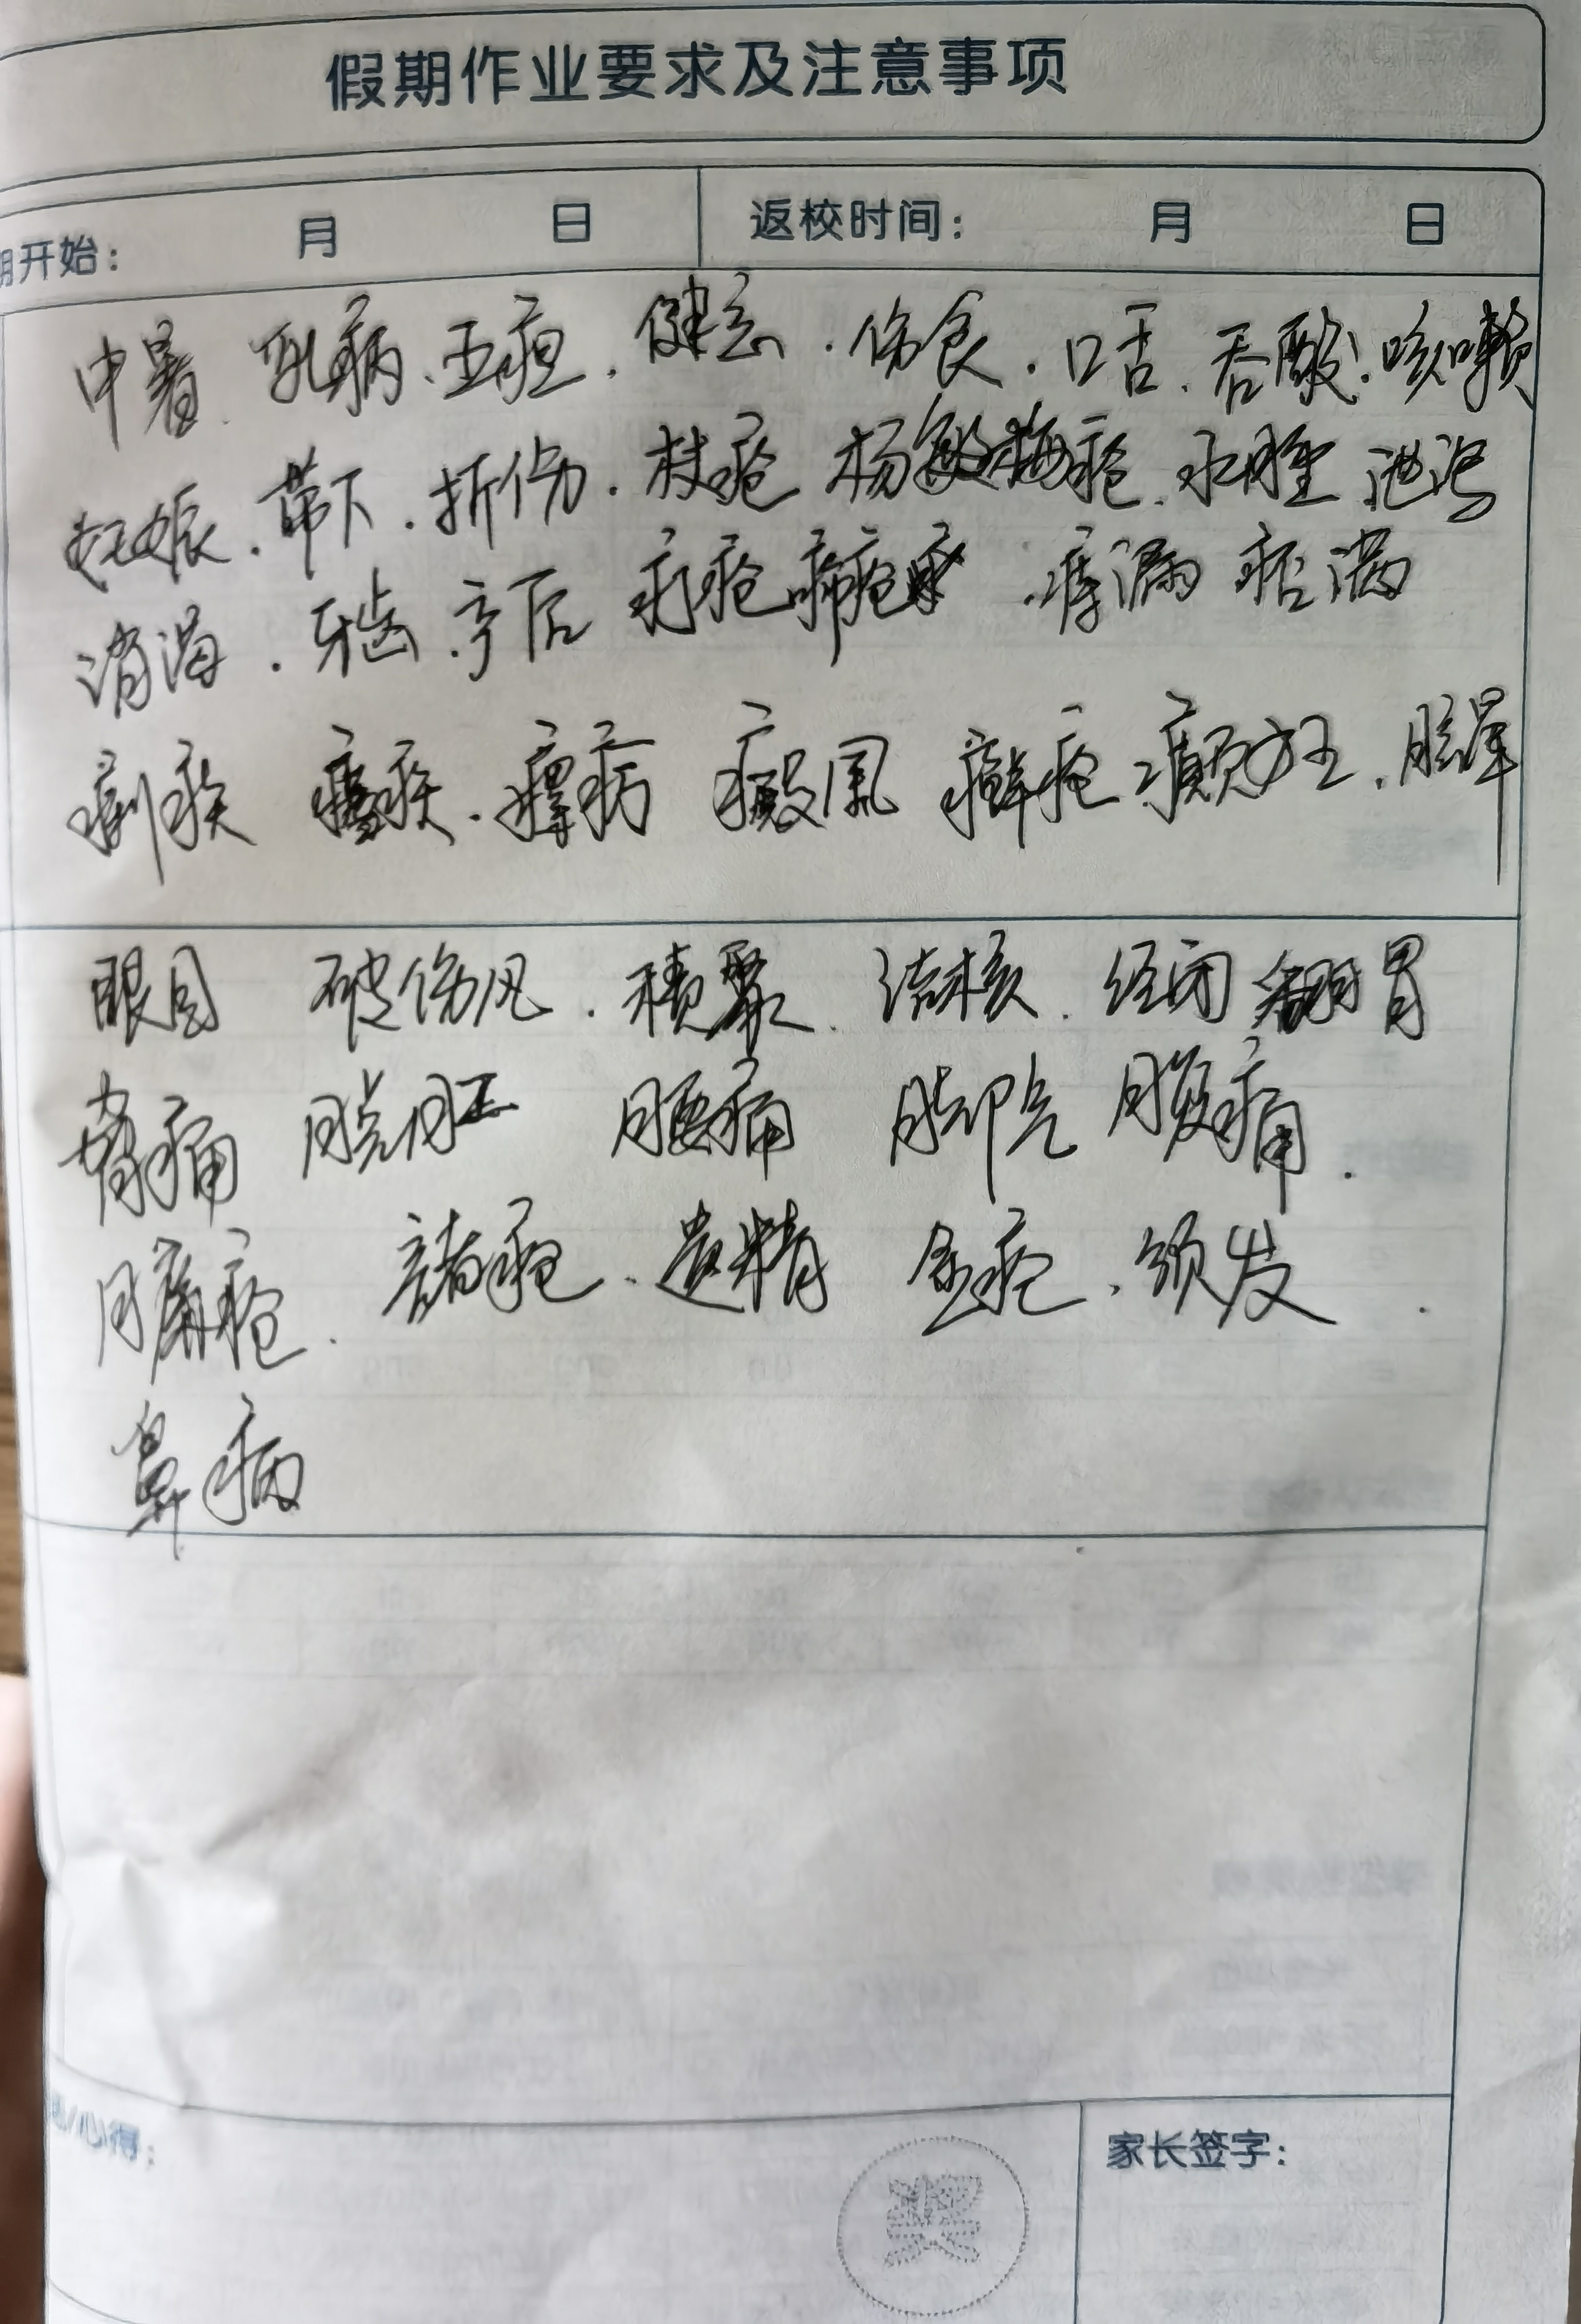 假期作业要求及注意事项
期开始： 月 日 返校时间： 月 日
中暑、乳病、五疸、健忘、伤食、口舌、吞酸、咳嗽
妊娠、带下、折伤、杖疮 杨梅疮、水肿 泄泻
消渴、牙齿、产后 疔疮 痔漏 痞满
痢疾 瘧疾、癜風 癣疮 癫狂、眩晕
眼目 破伤风、積聚、结核、经闭 翻胃
脊痛 脱肛 腰痛 脚气 腹痛
臁疮、諸疮、遗精 金疮、须发
鼻病
家长签字：
奖